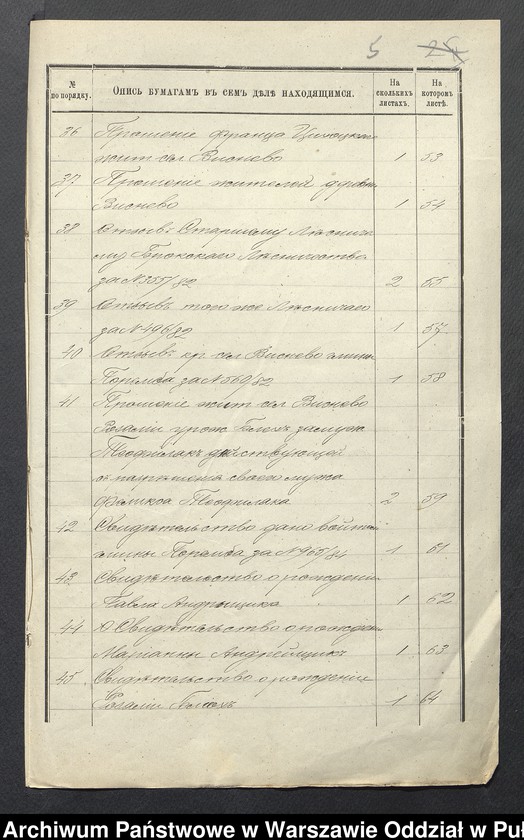 5 25
№ по порядку.
Опись бумагамъ въ семъ дѣлѣ находящимся.
На сколькихъ листахъ.
На которомъ листѣ.
36 Прошеніе Франца
жит. сел. Виснево 1 53
37 Прошеніе жителей деревни
Виснево 1 54
38 Отзывъ Старшему Лѣсни
чему Брокскаго Лѣсничества
за № 355/82 2 55
39 Отзывъ того же Лѣсничаго
за № 496/82 1 57
40 Отзывъ кр. сел. Виснево гмины
Поремба за № 560/82 1 58
41 Прошеніе жит. сел. Виснево
Розаліи урож. замуж.
Теофилакъ дѣйствующей
своего мужа
Феликса Теофилака 2 59
42 Свидѣтельство дано войтомъ
гмины Поремба за № 965/84 1 61
43 Свидѣтельство о рожденіи
Павла Андрыщика 1 62
44 Свидѣтельство о рожден.
Маріанны Андрейщикъ 1 63
45 Свидѣтельство о рожденіи
Розаліи 1 64
Archiwum Państwowe w Warszawie Oddział w Puł